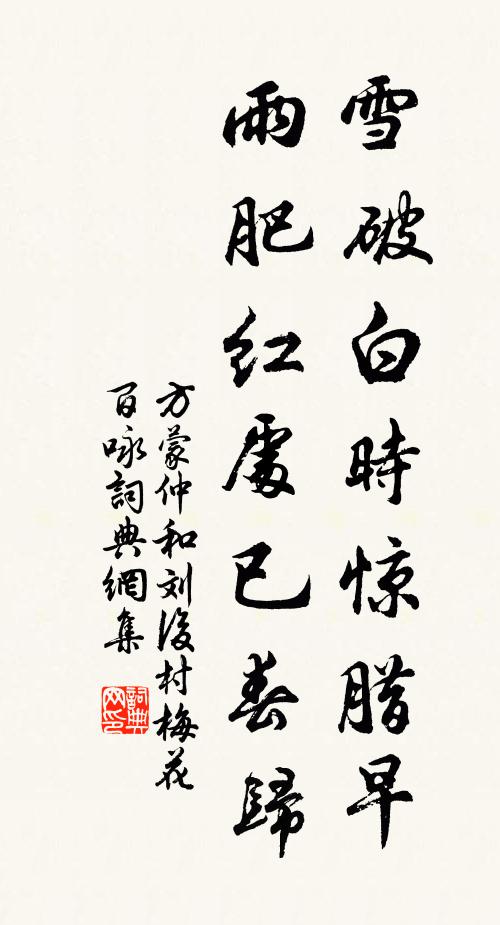 雪破白時惊腊早
雨肥红處已春歸
方蒙仲和刘後村梅花
百咏詞典網集
詞典网印